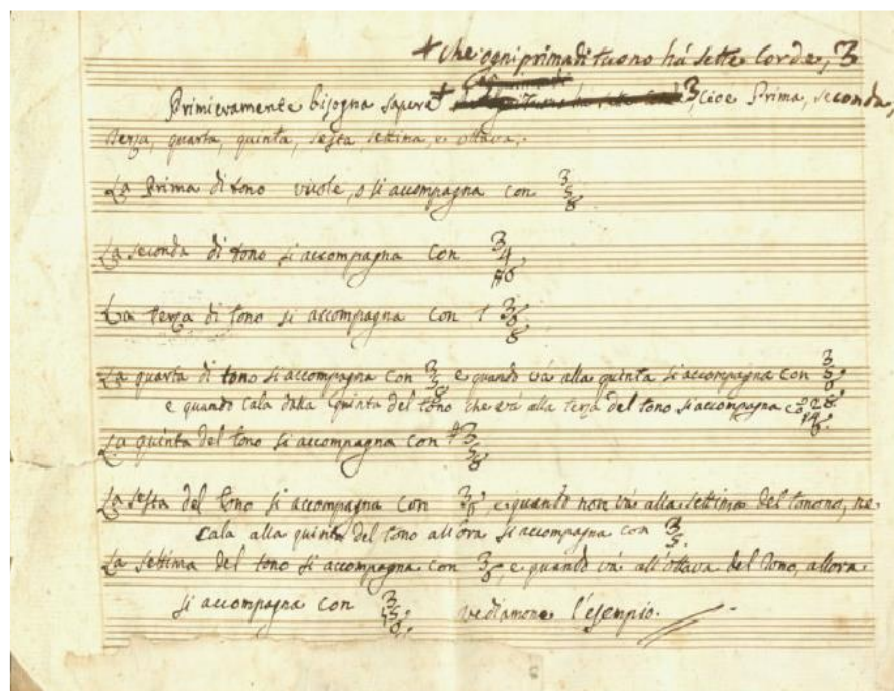 + che ogni prima di tuono há sette Corde, 3
Primieramente bisogna sapere + Cioe Prima, seconda,
Terza, quarta, quinta, sesta, settima, e ottava,
La Prima di tono vuole, o si accompagna con 3 5 8
La seconda di tono si accompagna Con 3 4 #6
La terza di tono si accompagna Con 3 6 8
La quarta di tono si accompagna Con 3 5 8 e quando vá alla quinta si accompagna con 3 5 6
e quando Cala dalla Quinta del tono che vá alla terza del tono si accompagna
La quinta del tono si accompagna con #3 5 8
La sesta del tono si accompagna con 3 6, e quando non vá alla settima del tonono, ne
Cala alla quinta del tono allora si accompagna con 3 5.
La settima del tono si accompagna con 3 6, e quando vá all'ottava del Tono, allora
si accompagna Con vediamone l'esempio.